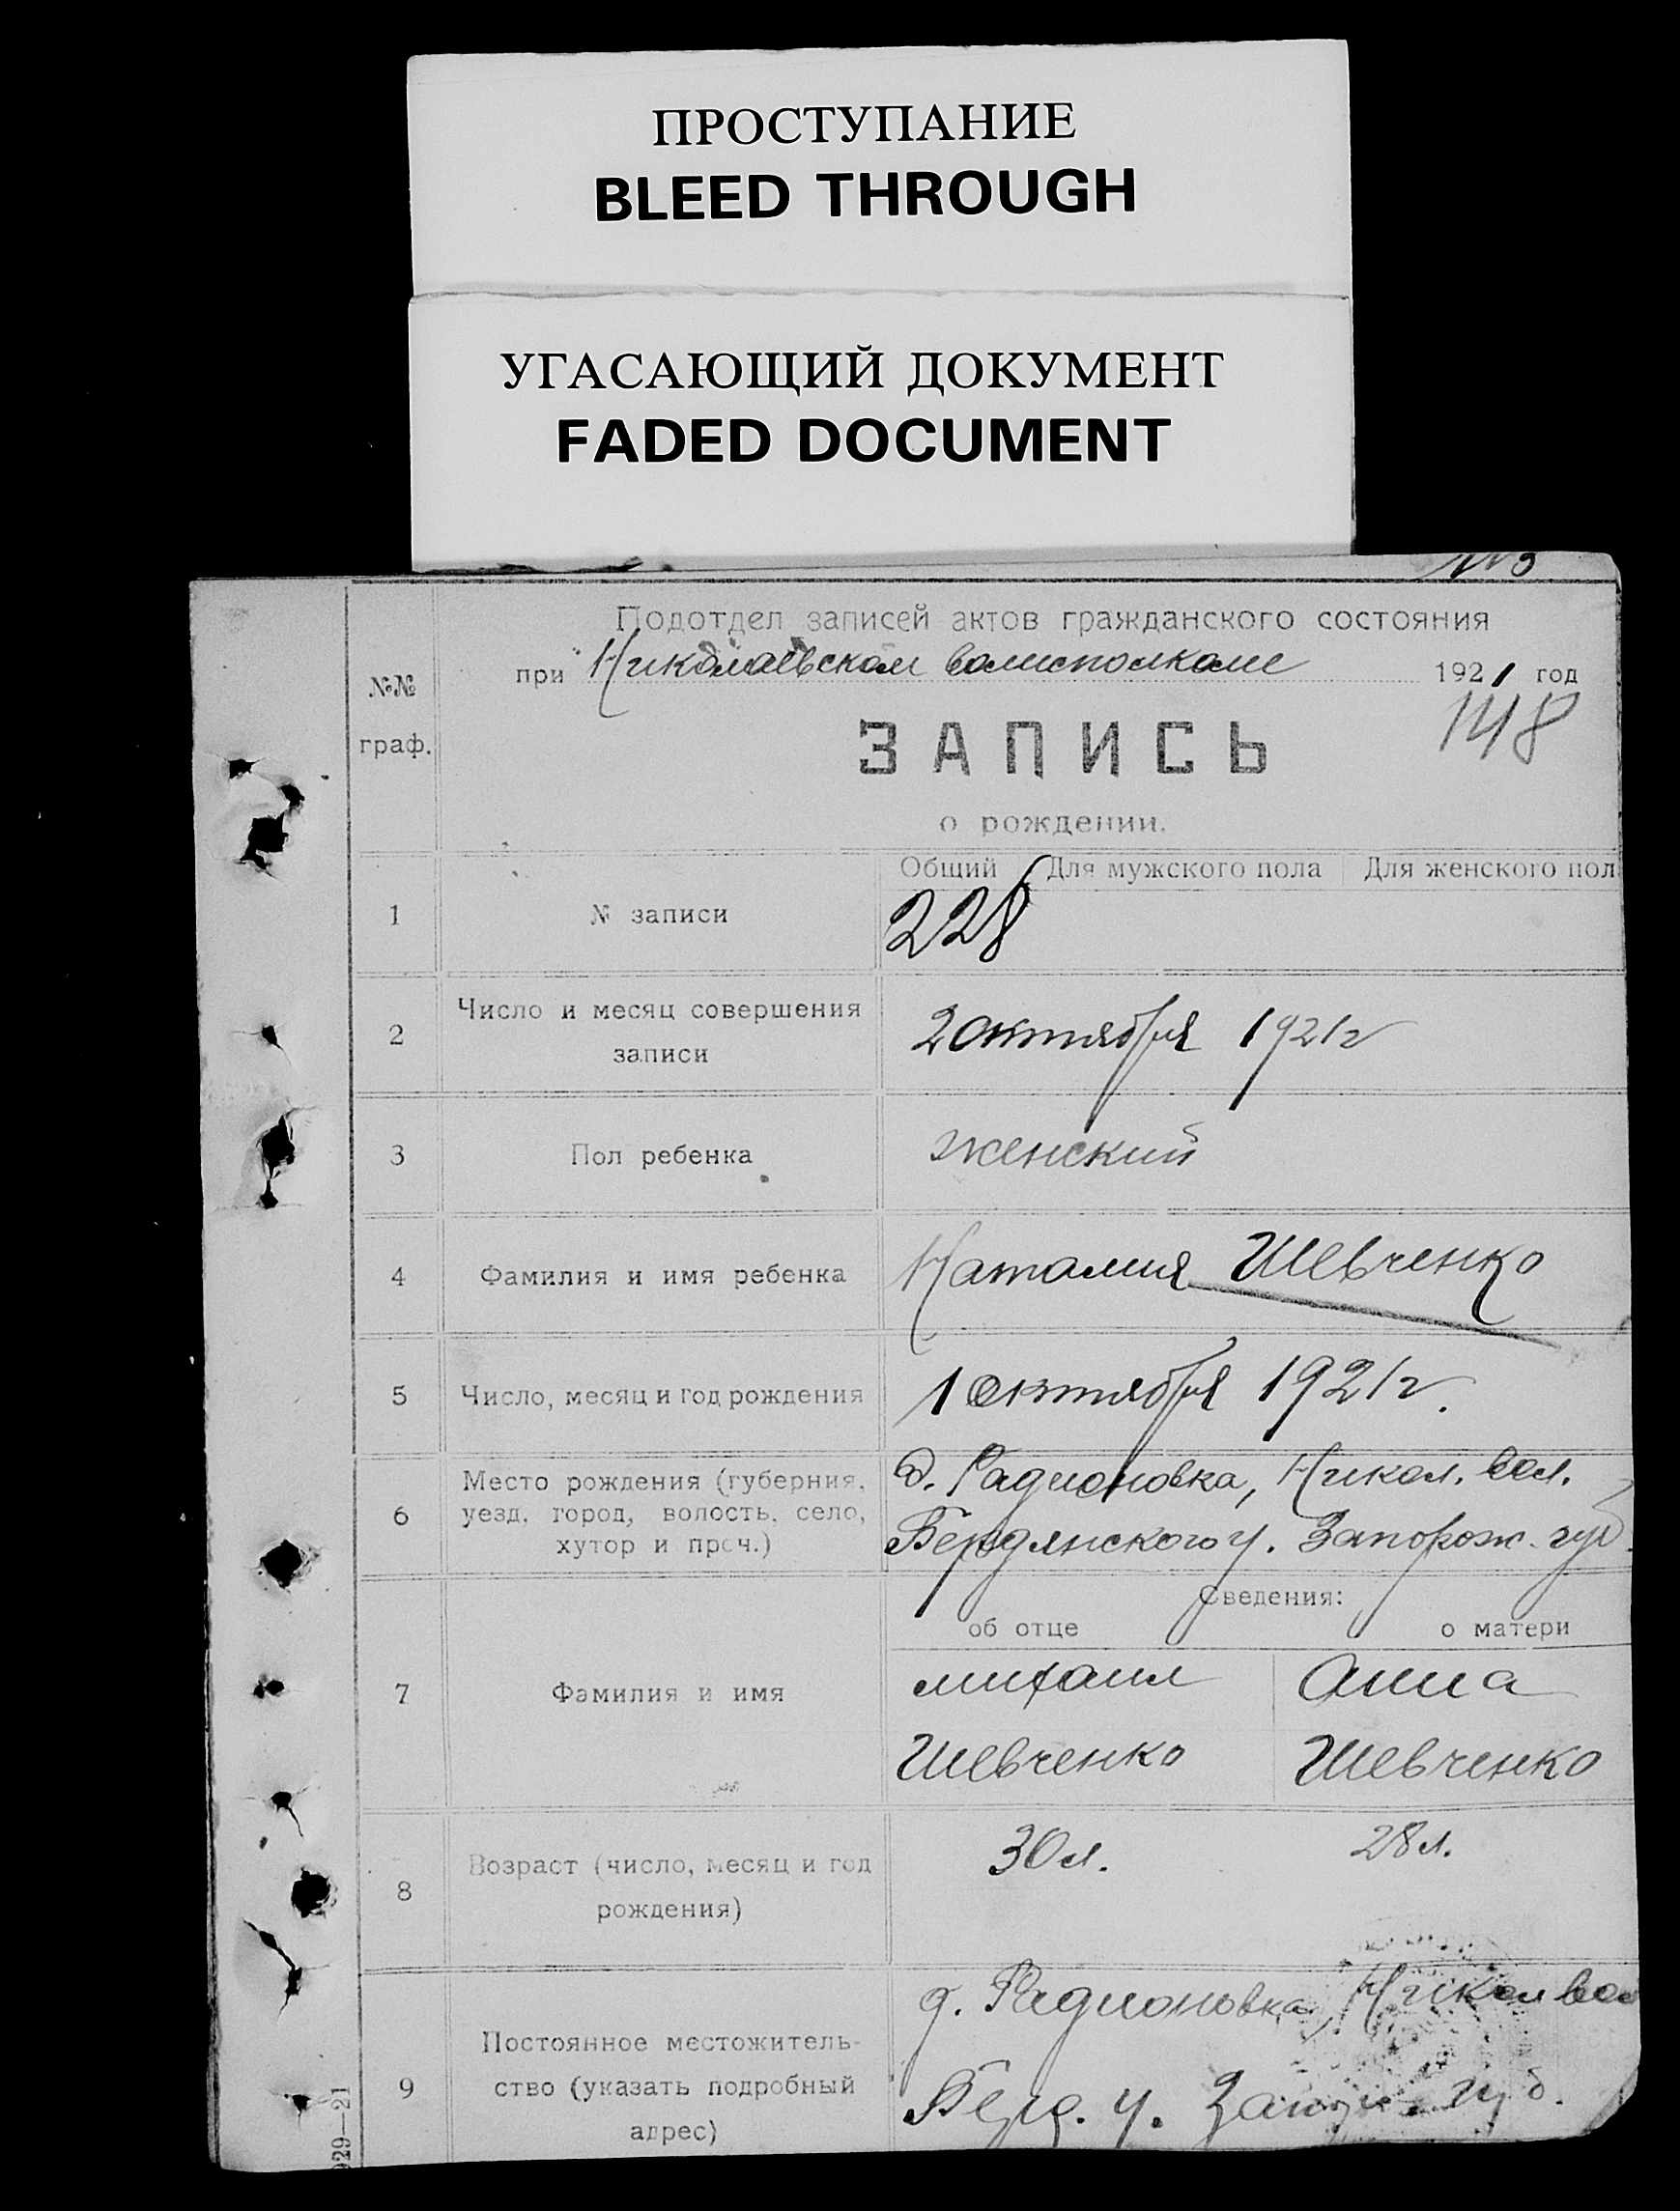 ПРОСТУПАНИЕ
BLEED THROUGH
УГАСАЮЩИЙ ДОКУМЕНТ
FADED DOCUMENT
Подотдел записей актов гражданского состояния
при Николаевском волисполкоме 1921 год
№№ граф.
148
ЗАПИСЬ
о рождении.
Общий Для мужского пола Для женского пол
1 № записи 228
2 Число и месяц совершения записи 2 октября 1921 г
3 Пол ребенка женский
4 Фамилия и имя ребенка Наталия Шевченко
5 Число, месяц и год рождения 1 октября 1921 г.
6 Место рождения (губерния, уезд, город, волость, село, хутор и проч.) д. Радионовка, Никол. вол.
Бердянского у. Запорож. губ.
Сведения:
об отце о матери
7 Фамилия и имя михаил Анна
Шевченко Шевченко
8 Возраст (число, месяц и год рождения) 30 л. 28 л.
9 Постоянное местожитель-
ство (указать подробный
адрес) д. Радионовка, Никол вол
Берд. у. Запор. губ.
929—21